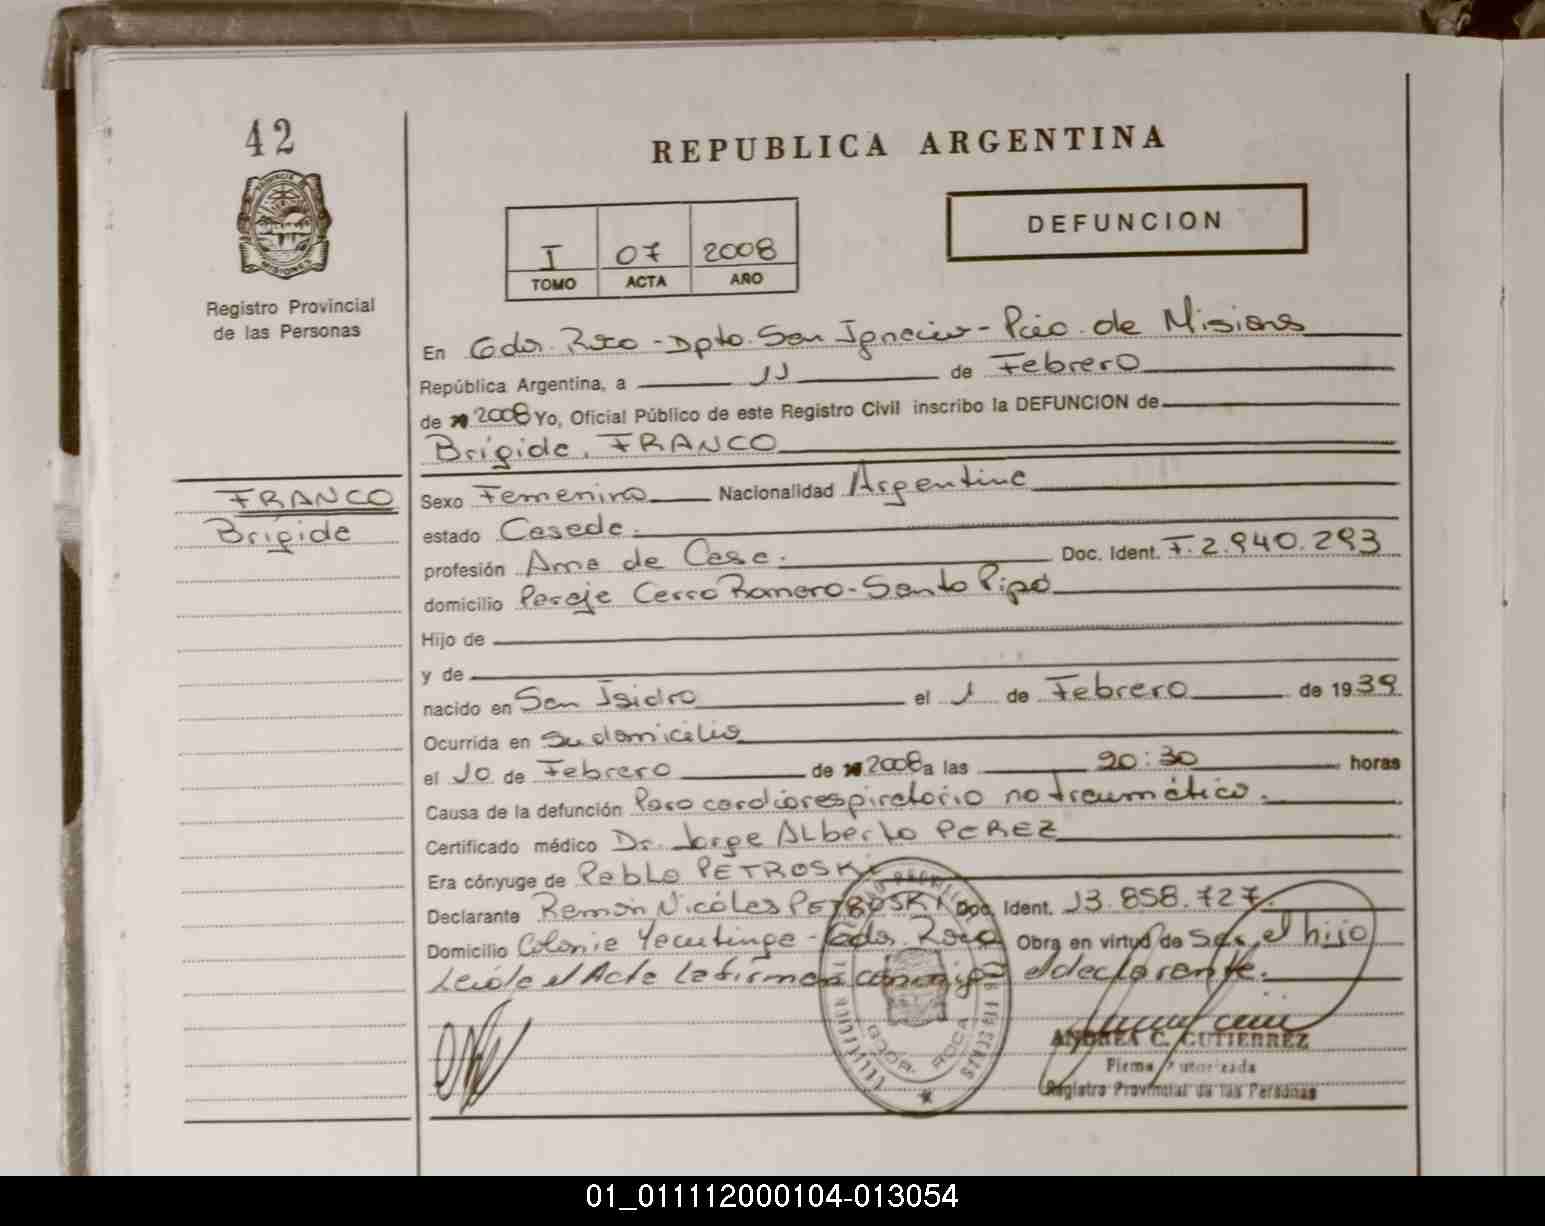 42
REPUBLICA ARGENTINA
DEFUNCION
I 07 2008
TOMO ACTA AÑO
PROVINCIA
MISIONES
Registro Provincial
de las Personas
En Gdor. Roca - Dpto. San Ignacio - Pcia. de Misiones
República Argentina, a 11 de Febrero
de 2008 Yo, Oficial Público de este Registro Civil inscribo la DEFUNCION de
Brígida, FRANCO
FRANCO
Brígida
Sexo Femenino Nacionalidad Argentina
estado Casada.
profesión Ama de Casa. Doc. Ident. F. 2.940.293
domicilio Paraje Cerro Romero - Santo Pipó
Hijo de
y de
nacido en San Isidro el 1 de Febrero de 1939
Ocurrida en su domicilio
el 10 de Febrero de 2008 a las 20:30 horas
Causa de la defunción Paro cardiorespiratorio no traumático.
Certificado médico Dr. Jorge Alberto PEREZ
Era cónyuge de Pablo PETROSKI
Declarante Ramón Nicóles PETROSKI Doc. Ident. 13.858.727.
Domicilio Colonia Yacutinga - Gdor. Roca Obra en virtud de ser el hijo
Leída el Acta la firma conmigo el declarante.
GDOR. ROCA
ANDREA C. GUTIERREZ
Firma Autorizada
Registro Provincial de las Personas
01_011112000104-013054